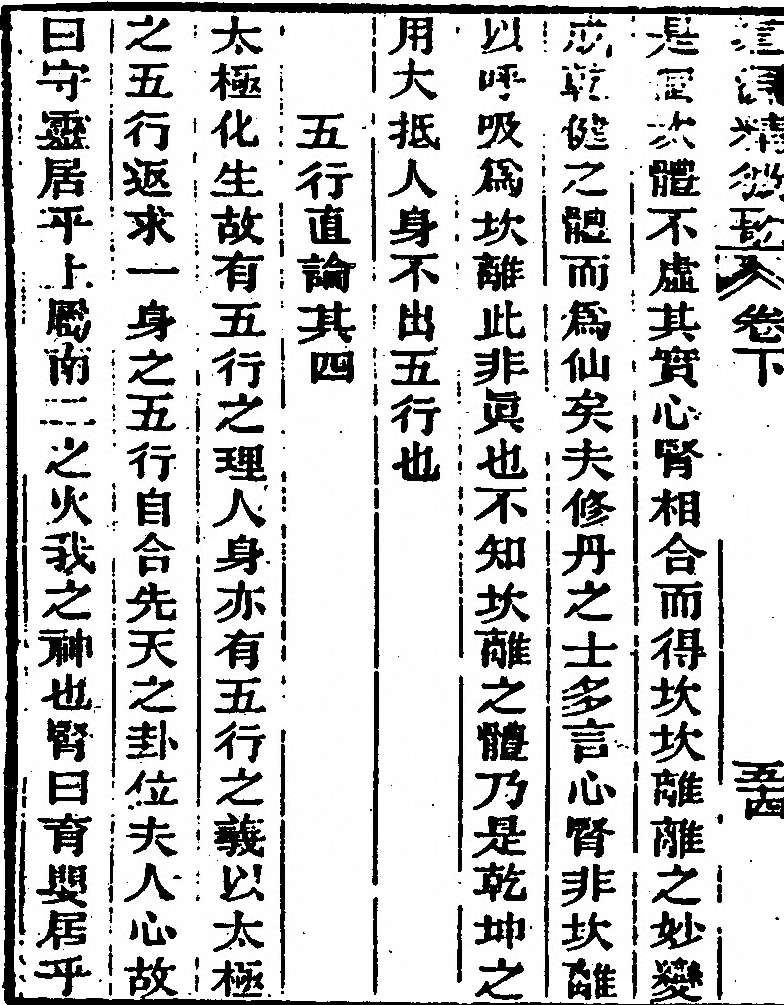 卷下 五十四
是坎體不虛其實心腎相合而得坎坎離離之妙變
成乾健之體而爲仙矣夫修丹之士多言心腎非坎離
以呼吸爲坎離此非眞也不知坎離之體乃是乾坤之
用大抵人身不出五行也
五行直論其四
太極化生故有五行之理人身亦有五行之義以太極
之五行返求一身之五行自合先天之卦位夫人心故
曰守靈居乎上屬南二之火我之神也腎曰育嬰居乎